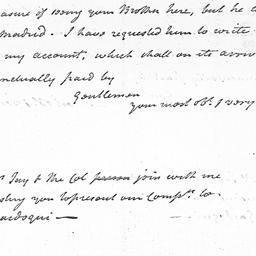 asure of seeing your Brother here, but he
Madrid. I have requested him to write
my account, which shall on its arriv
nctually paid by
Gentlemen
your most Obt. & very
Jay & the Col person join with me
you to present our Compts. to
ardoqui —